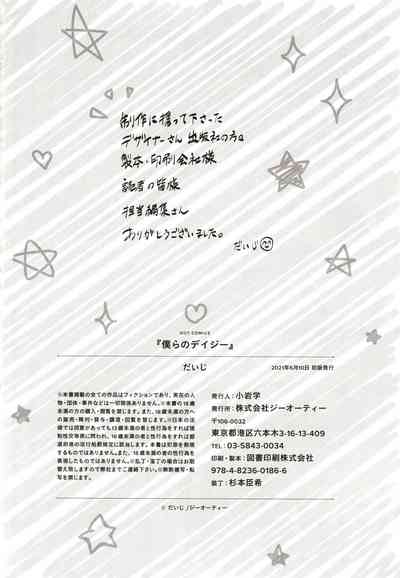 制作に携って下さった
デザイナーさん 出版社の方々
製本・印刷会社様
読者の皆様
担当編集さん
ありがとうございました。
だいじ
HOT COMICS
『僕らのデイジー』
だいじ
2021年6月10日 初版発行
※本書掲載の全ての作品はフィクションであり、実在の人
物・団体・事件などは一切関係ありません。※本書の18歳
未満の方の購入・閲覧を禁じます。また、18歳未満の方へ
の販売・貸与・譲渡・回覧を禁じます。※日本の法
律では同意があっても13歳未満の者と性行為をすれば強
制性交等罪に問われ、18歳未満の者と性行為をすれば都
道府県の淫行処罰規定に抵触します。本書は犯罪を助長
するものではありません。また、18歳未満の者の性行為を
表現したものではありません。※乱丁・落丁の場合はお取
替え致しますので弊社までご連絡下さい。※無断複写・転
写を禁じます。
発行人:小岩学
発行所:株式会社ジーオーティー
〒106-0032
東京都港区六本木3-16-13-409
TEL:03-5843-0034
印刷・製本:図書印刷株式会社
978-4-8236-0186-6
装丁:杉本臣希
© だいじ/ジーオーティー